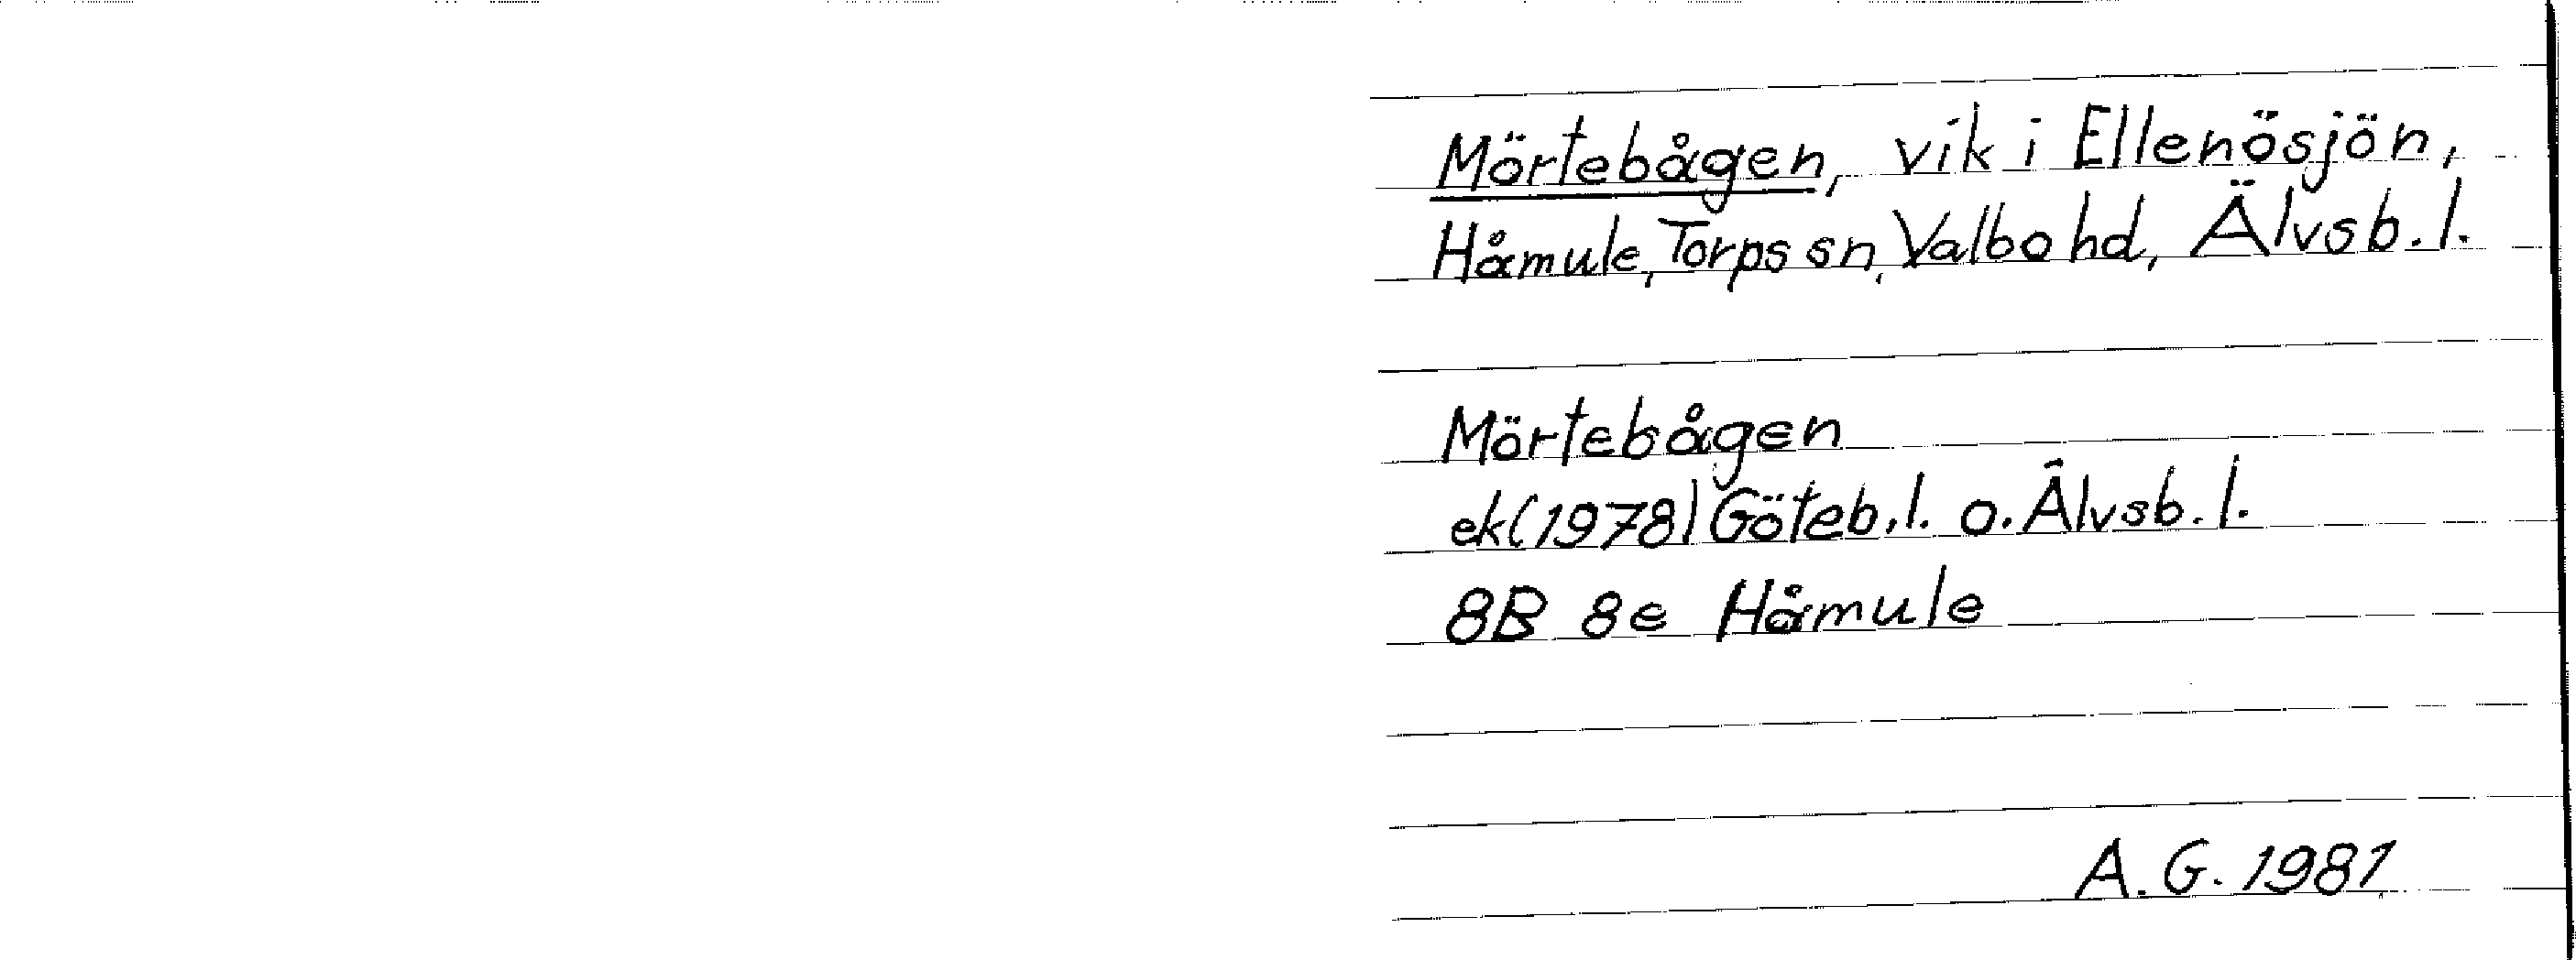 Mörtebågen, vik i Ellenösjön,
Håmule, Torps sn, Valbo hd, Älvsb. l.
Mörtebågen
ek (1978) Göteb. l. o. Älvsb. l.
8B 8e Håmule
A. G. 1981